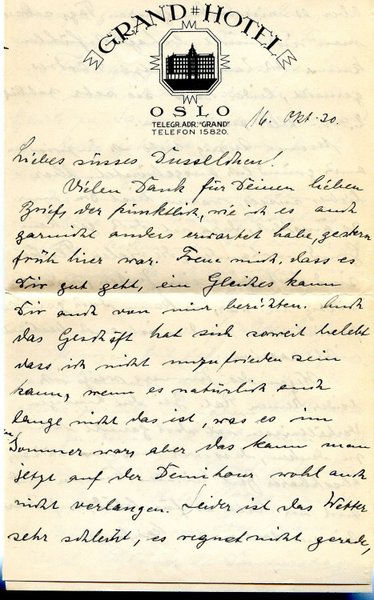 GRAND HOTEL
OSLO
TELEGR.ADR. "GRAND"
TELEFON 15820.
16. Okt. 30.
Liebes süsses Dusselchen!
Vielen Dank für Deinen lieben
Brief, der pünktlich, wie ich es auch
garnicht anders erwartet habe, gestern
früh hier war. Freue mich, dass es
Dir gut geht, ein Gleiches kann
Dir auch von mir berichten. Auch
das Geschäft hat sich soweit belebt
dass ich nicht unzufrieden sein
kann, wenn es natürlich auch
lange nicht das ist, was es im
Sommer war, aber das kann man
jetzt auf der Demi wohl auch
nicht verlangen. Leider ist das Wetter
sehr schlecht, es regnet nicht gerade,